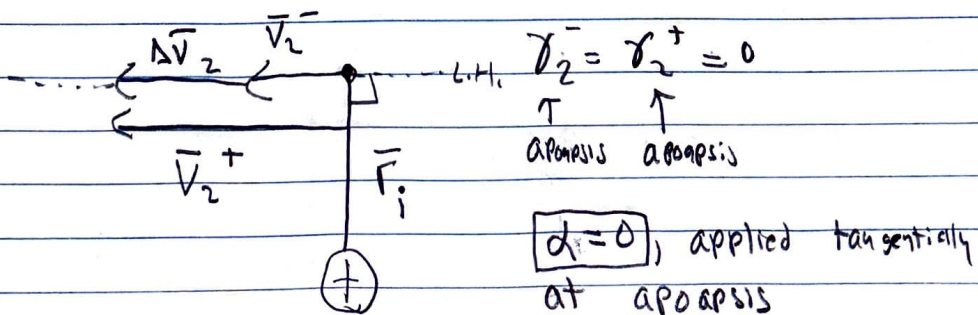 ΔV̄₂ V̄₂⁻ L.H. γ₂⁻ = γ₂⁺ = 0
↑ ↑
apoapsis apoapsis
V̄₂⁺ r̄ᵢ
α = 0, applied tangentially
at apoapsis